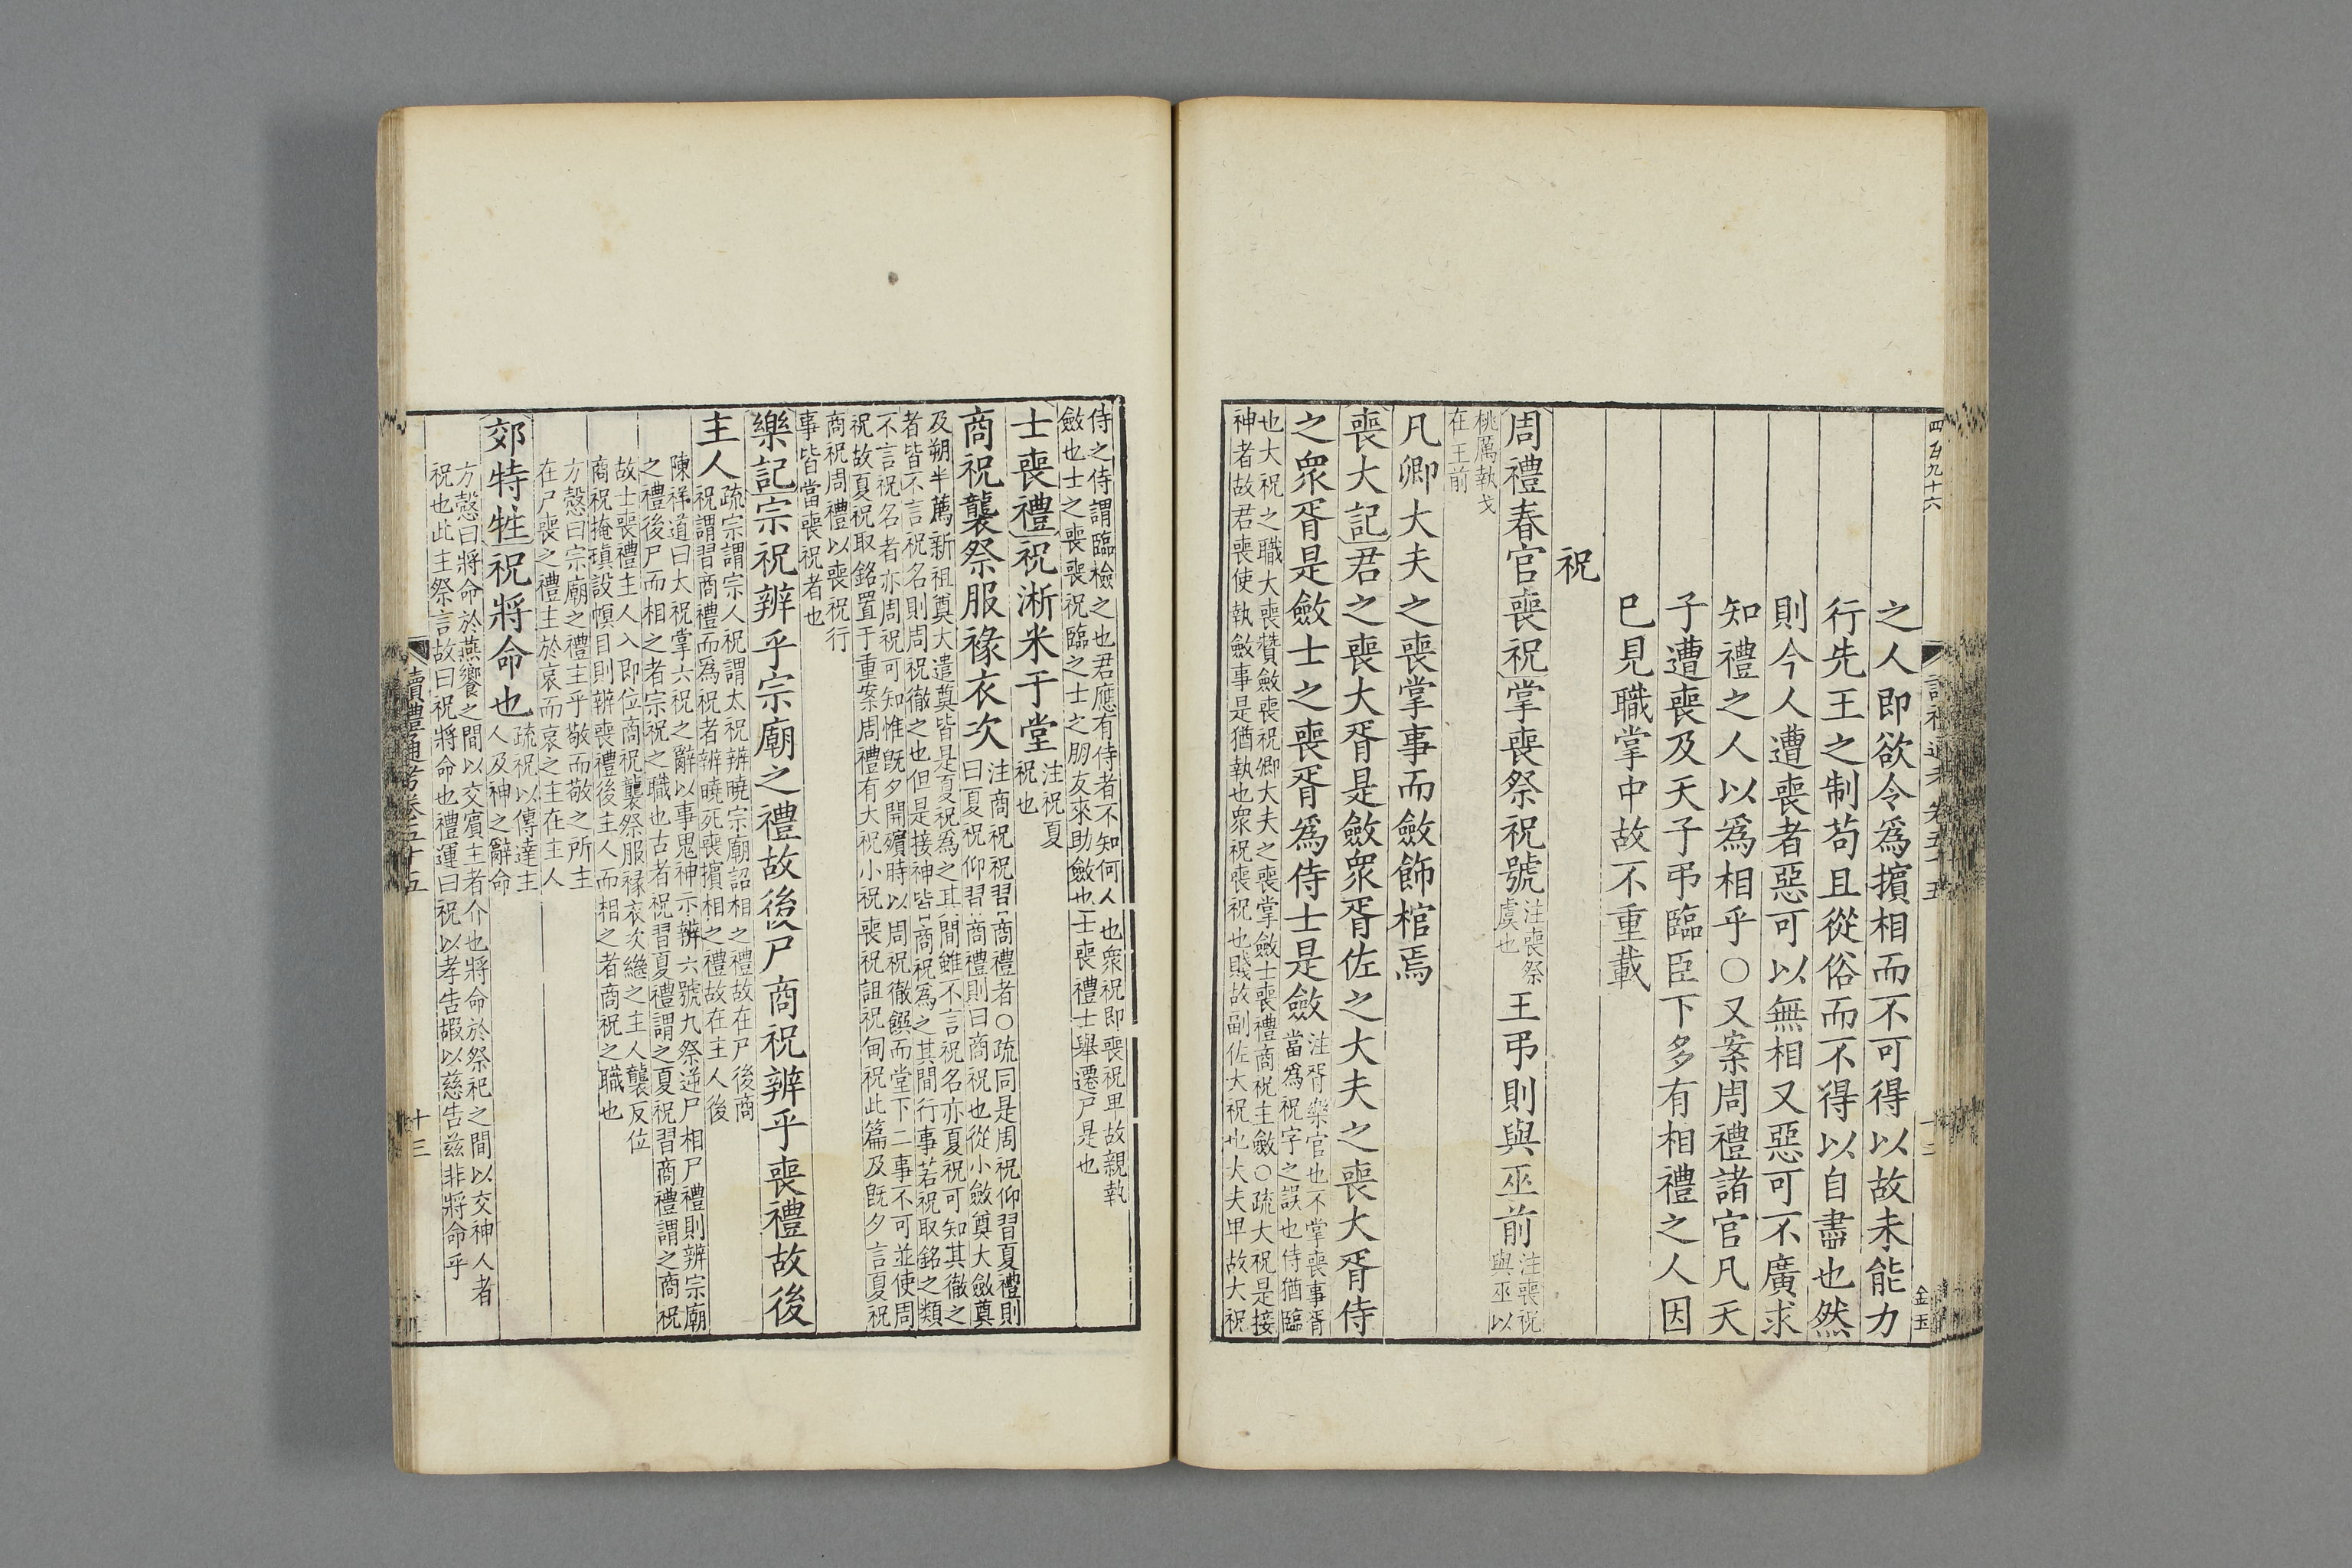 四百九十六
讀禮通考卷五十五
十二
金玉
之人即欲令爲擯相而不可得以故未能力
行先王之制苟且從俗而不得以自盡也然
則今人遭喪者惡可以無相又惡可不廣求
知禮之人以爲相乎○又案周禮諸官凡天
子遭喪及天子弔臨臣下多有相禮之人因
已見職掌中故不重載
祝
周禮春官喪祝掌喪祭祝號
注喪祭
虞也
王弔則與巫前
注喪祝
與巫以
桃厲執戈
在王前
凡卿大夫之喪掌事而斂飾棺焉
喪大記君之喪大胥是斂衆胥佐之大夫之喪大胥侍
之衆胥是斂士之喪胥爲侍士是斂
注胥樂官也不掌喪事胥
當爲祝字之誤也侍猶臨
也大祝之職大喪贊斂喪祝卿大夫之喪掌斂士喪禮商祝主斂○疏大祝是接
神者故君喪使執斂事是猶執也衆祝喪祝也賤故副佐大祝也大夫卑故大祝
侍之侍謂臨檢之也君應有侍者不知何人也衆祝即喪祝卑故親執
斂也士之喪喪祝臨之士之朋友來助斂也士喪禮士舉遷尸是也
士喪禮祝淅米于堂
注祝夏
祝也
商祝襲祭服褖衣次
注商祝祝習商禮者○疏同是周祝仰習夏禮則
曰夏祝仰習商禮則曰商祝也從小斂奠大斂奠
及朔半薦新祖奠大遣奠皆是夏祝爲之其間雖不言祝名亦夏祝可知其徹之
者皆不言祝名則周祝徹之也但是接神皆商祝爲之其間行事若祝取銘之類
不言祝名者亦周祝可知惟旣夕開殯時以周祝徹饌而堂下二事不可並使周
祝故夏祝取銘置于重案周禮有大祝小祝喪祝詛祝甸祝此篇及旣夕言夏祝
商祝周禮以喪祝行
事皆當喪祝者也
樂記宗祝辨乎宗廟之禮故後尸商祝辨乎喪禮故後
主人
疏宗謂宗人祝謂太祝辨曉宗廟詔相之禮故在尸後商
祝謂習商禮而爲祝者辨曉死喪擯相之禮故在主人後
陳祥道曰大祝掌六祝之辭以事鬼神示辨六號九祭逆尸相尸禮則辨宗廟
之禮後尸而相之者宗祝之職也古者祝習夏禮謂之夏祝習商禮謂之商祝
故士喪禮主人入即位商祝襲祭服褖衣次繼之主人襲反位
商祝掩瑱設幎目則辨喪禮後主人而相之者商祝之職也
方慤曰宗廟之禮主乎敬而敬之所主
在尸喪之禮主於哀而哀之主在主人
郊特牲祝將命也
疏祝以傳達主
人及神之辭命
方慤曰將命於燕饗之間以交賓主者介也將命於祭祀之間以交神人者
祝也此主祭言故曰祝將命也禮運曰祝以孝告嘏以慈告兹非將命乎
讀禮通考卷五十五
十三